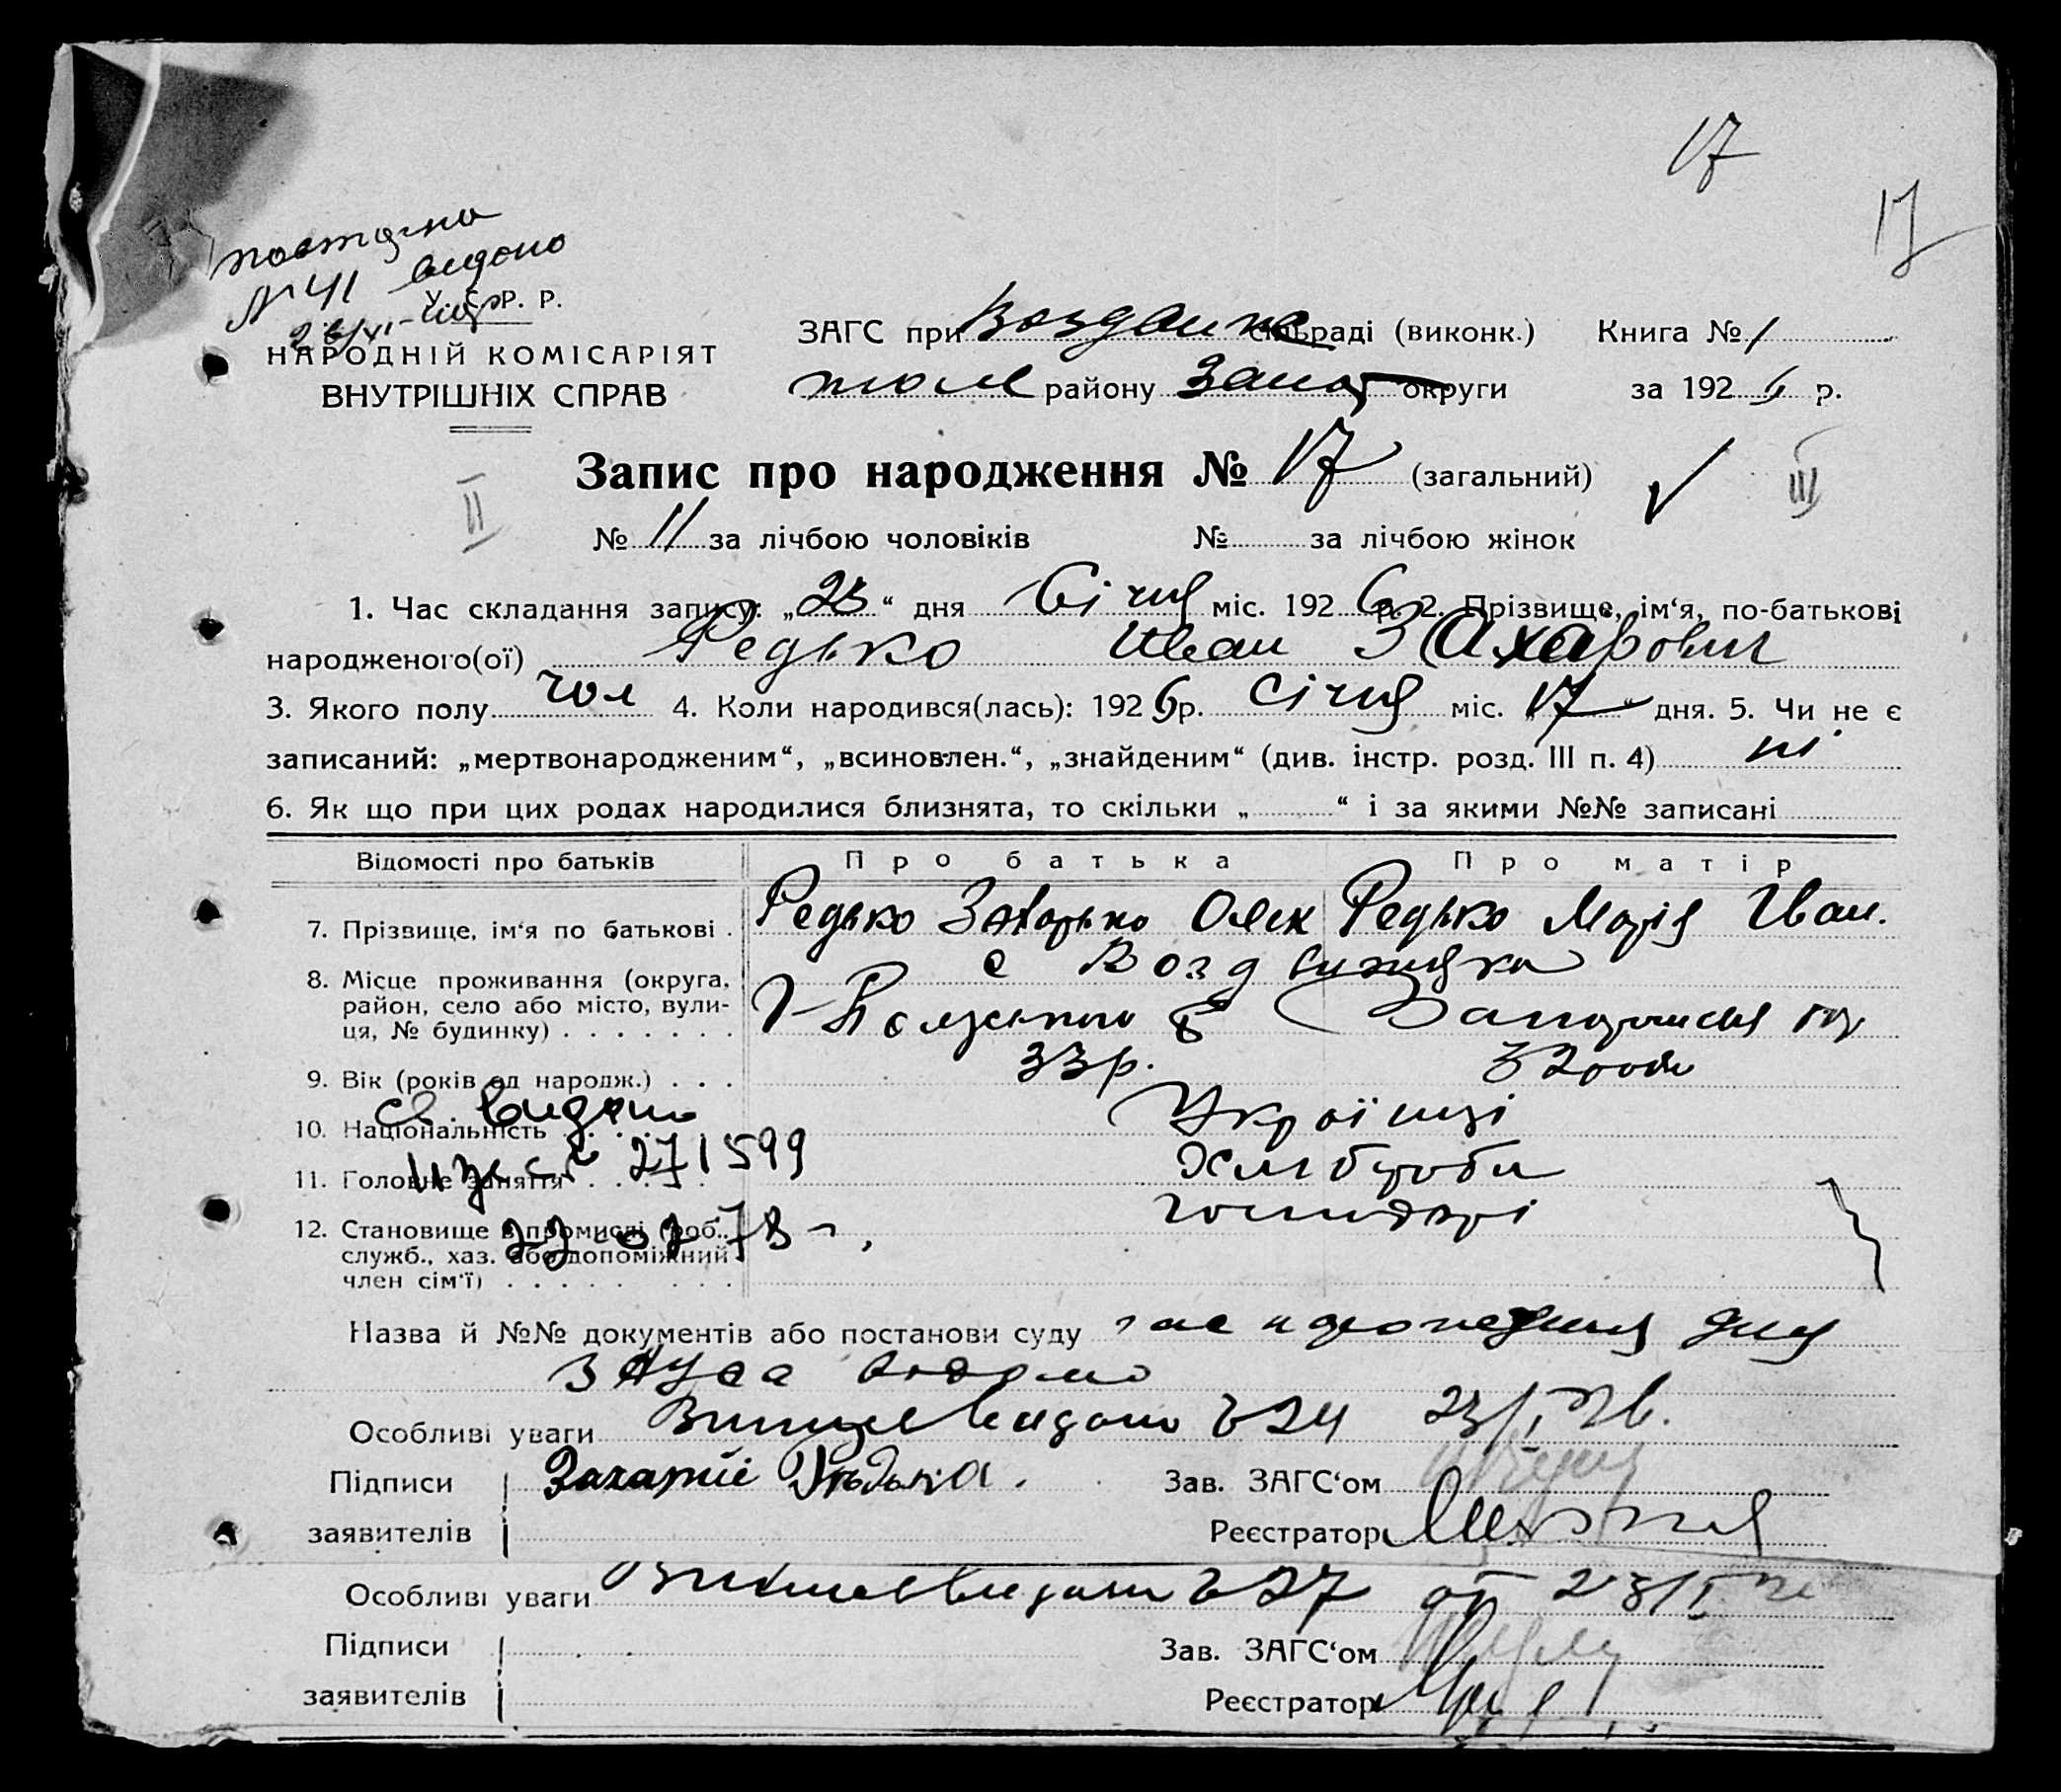 17
17
повторно
№ 41 видано
У. С. Р. Р.
НАРОДНІЙ КОМІСАРІЯТ
ВНУТРІШНІХ СПРАВ
ЗАГС при сільраді (виконк.) Книга № 1
району Запор округи за 1926 р.
Запис про народження № 17 (загальний)
II III
№ 11 за лічбою чоловіків № за лічбою жінок
1. Час складання запису: „23“ дня Січня міс. 1926 р. 2. Прізвище, ім‘я, по-батькові
народженого(ої) Редько Иван Захарович
3. Якого полу чол 4. Коли народився(лась): 1926 р. Січня міс. „17“ дня. 5. Чи не є
записаний: „мертвонародженим“, „всиновлен.“, „знайденим“ (див. інстр. розд. III п. 4) ні
6. Як що при цих родах народилися близнята, то скільки „ “ і за якими №№ записані
Відомості про батьків Про батька Про матір
7. Прізвище, ім‘я по батькові . Редько Захарько Олек Редько Марія Іван.
8. Місце проживання (округа, с Воздвижка
район, село або місто, вули-
ця, № будинку)
9. Вік (років од народж.) . . . 33р.
св. видано
10. Національність Українці
271599
11. Головне заняття Хлібороби
12. Становище в промислі (роб., господарі
22-02-78 г.
служб., хаз. або допоміжний
член сім‘ї)
Назва й №№ документів або постанови суду
Особливі уваги видано 23/I 26.
Підписи Захарий Редька. Зав. ЗАГС‘ом
заявителів Реєстратор
Особливі уваги 27 от 23/I
Підписи Зав. ЗАГС‘ом
заявителів Реєстратор